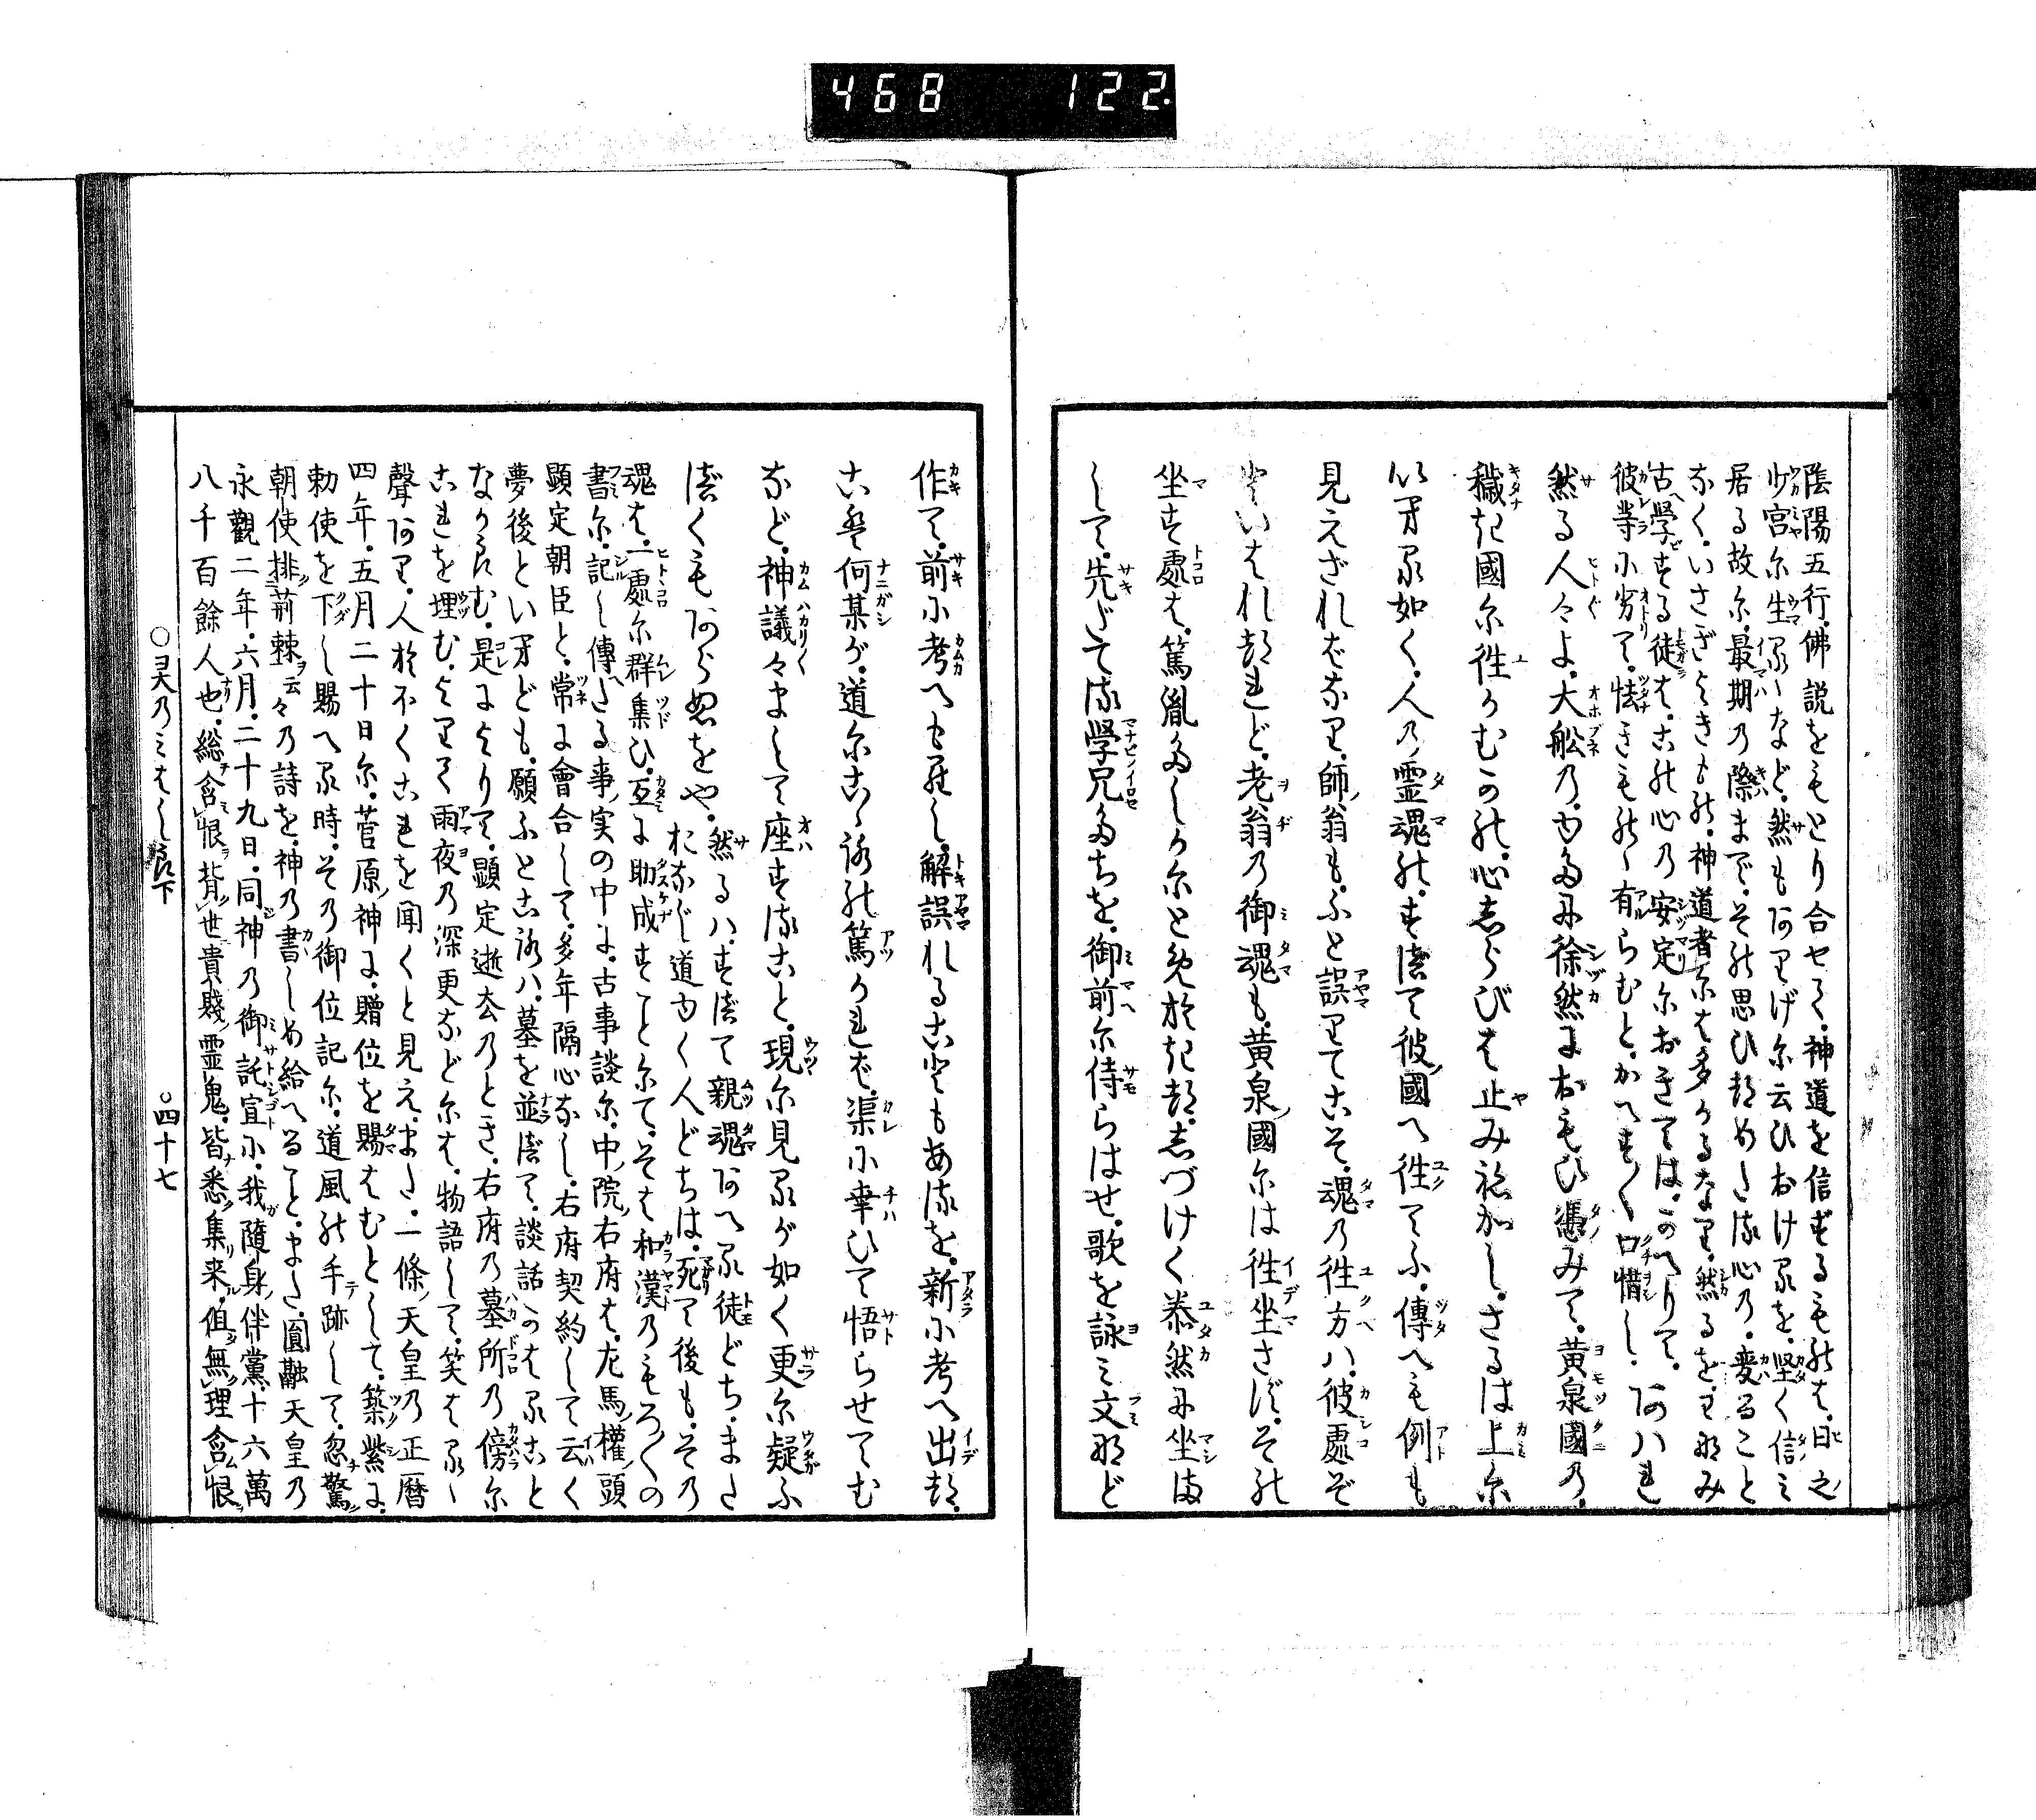 468 122.
陰陽五行佛説をもとり合せて.神道を信ずるものは.日之
少宮に生るゝなど.然もありげに云ひおける を.堅く信み
居る故に.最期の際まで.その思ひ めたる心の.変ること
なく.いさぎよきもの.神道者には多かるなり.然るを.わ み
古學する徒は.この心の安定におきては.かへりて.
彼等に劣りて.怯きもの 有らむと.かへすく口惜し.あはれ
然る人々よ.大舩の.ゆた に徐然におもひ憑みて.黄泉國の.
穢き國に往かむかの.心しらびは止み かし.さるは上に
いへる如く.人の霊魂の.すべて彼國へ往てふ.傳へも例も
見えざればなり.師ノ翁も.ふと誤りてこそ.魂の往方ハ.彼處ぞ
といはれつれど.老翁の御魂も.黄泉ノ國には往坐さず.その
坐す處は.篤胤たしかにとめおきつ.しづけく泰然に坐ま
して.先だてる學兄たちを.御前に侍らはせ.歌を詠ミ文など
作て.前に考へもらし.解誤れることもあるを.新に考へ出つ.
こは何某が.道にこゝろの篤かれば.渠に幸ひて悟らせてむ
など.神議々まして座すること.現に見るが如く更に疑ふ
べくもあらぬをや.然るハ.すべて親魂あへる徒どち.また
おなじ道ゆく人どちは.死て後も.その
魂は.一處に群集ひ.互に助成すことにて.そは和漢のものゝの
書に.記し傳へたる事ノ実の中に.古事談に.中ノ院ノ右府は.左馬ノ權ノ頭
顯定朝臣と.常に會合して.多年隔心なし.右府契約して云く
夢後といへども.願ふところハ.墓を並べて.談話のはること
なからむ.是によりて.顯定逝去のとき.右府の墓所の傍に
これを埋む.よりて雨夜の深更などには.物語して.笑はるゝ
聲あり.人おほくこれを聞くと見え.また.一條ノ天皇の正曆
四年.五月二十日に.菅原ノ神に.贈位を賜はむとして.築紫に.
勅使を下し賜へる時.その御位記に.道風の手跡して.忽驚
朝使排荊棘云々の詩を.神の書しめ給へること.また.圓融天皇の
永觀二年.六月.二十九日.同神の御託宣に.我隨身ノ伴黨.十六萬
八千百餘人也.総含恨背世貴賤ノ霊鬼.皆悉集来.但無理含恨
○霊乃みはしら下 ○四十七